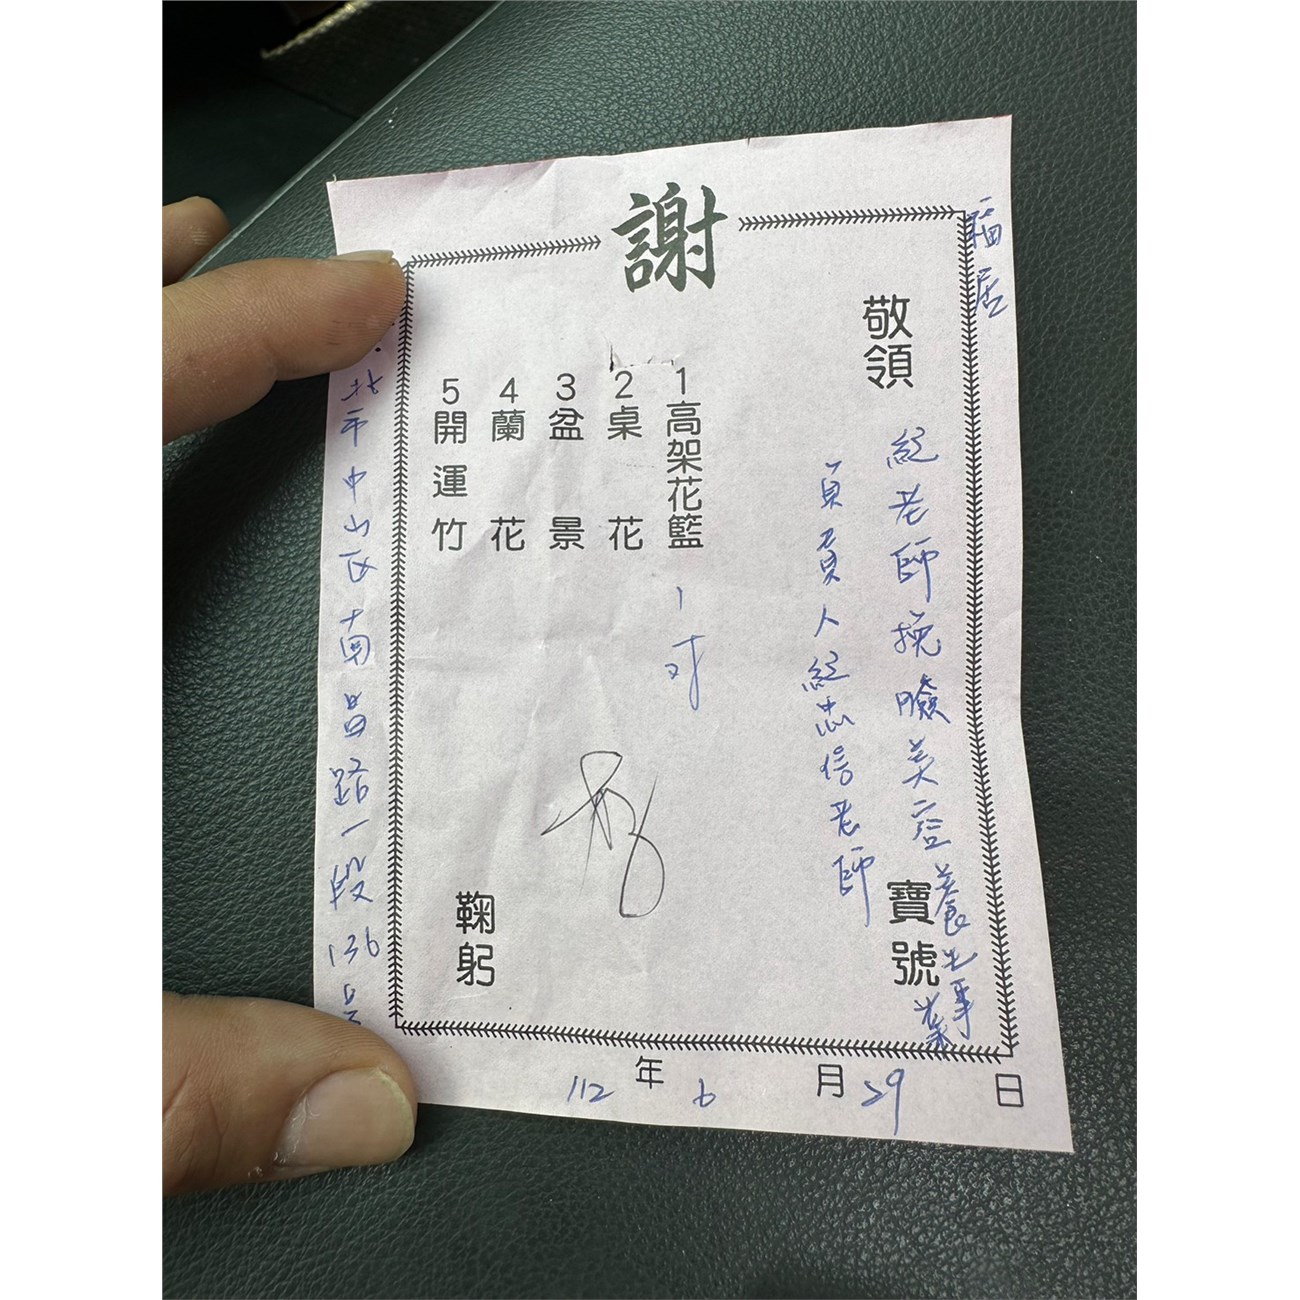 謝
福居
敬領 紀老師挽臉美容養生事業 寶號
負責人紀忠信老師
1高架花籃 1対
2桌花
3盆景
4蘭花
5開運竹
鞠躬
北市中山区南昌路一段136号
112年6月29日